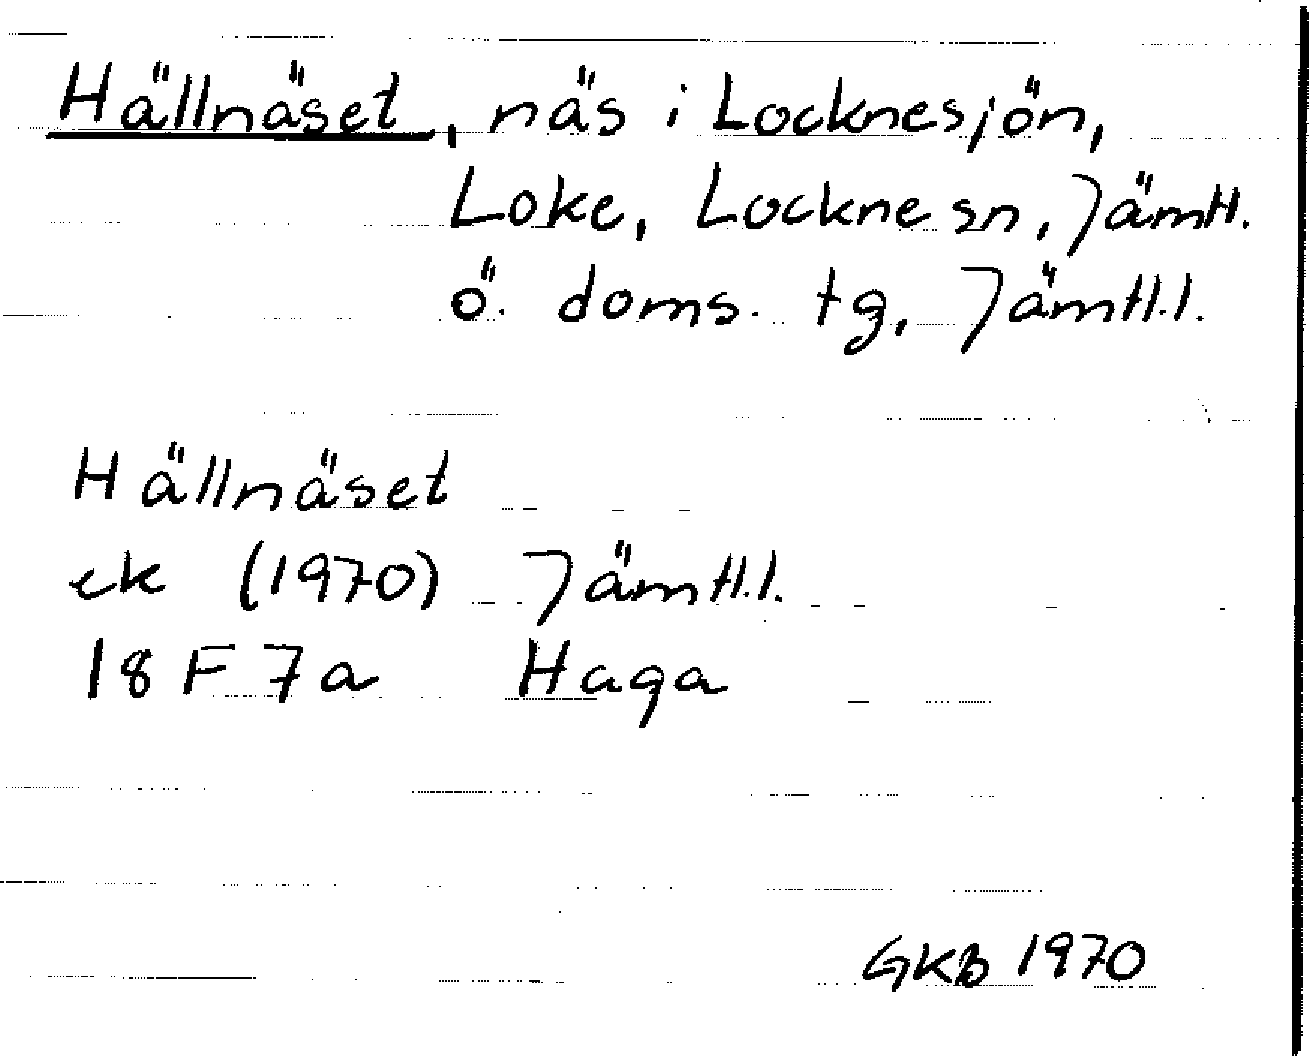 Hällnäset, näs i Locknesjön,
Loke, Lockne sn, Jämtl.
ö. doms. tg, Jämtl.l.
Hällnäset
ek (1970) Jämtl.l.
18 F 7a Haga
GKB 1970